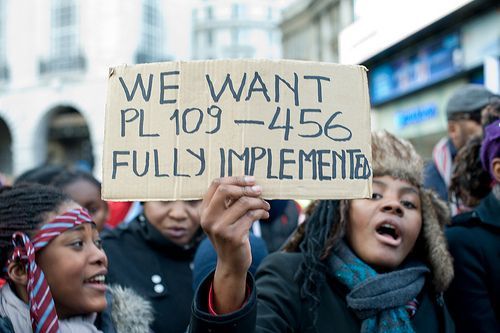 WE WANT
PL 109-456
FULLY IMPLEMENTED